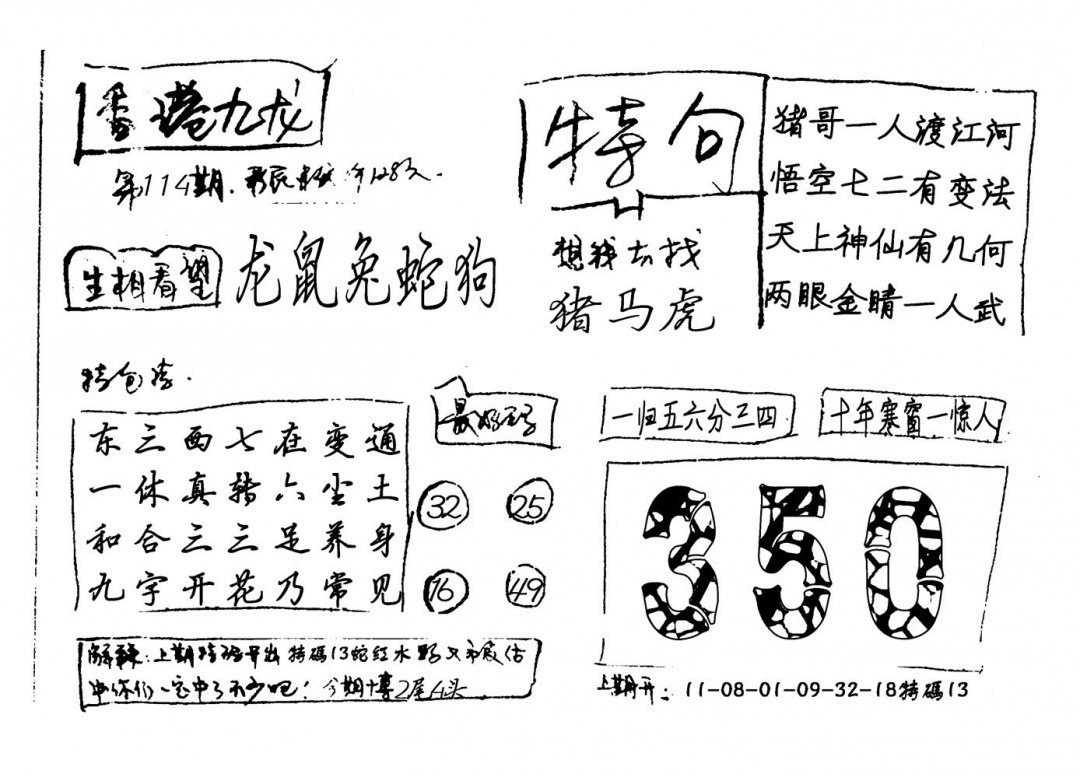 香港九龙
第114期
生相看望 龙鼠兔蛇狗
特句
想我去找
猪马虎
猪哥一人渡江河
悟空七二有变法
天上神仙有几何
两眼金睛一人武
特包
东三西七在变通
一休真转六尘土
和合三三足养身
九字开花乃常见
32 25
16 49
一归五六分三四
十年寒窗一惊人
350
解釋:上期特碼开出特碼13蛇红水
今期博2尾4头
上期开:11-08-01-09-32-18特碼13